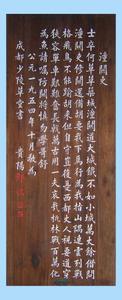 潼關吏
士卒何草草築城潼關道大城鐵不如小城萬丈餘借問
潼關吏修關還備胡要我下馬行為我指山隅連雲列戰
格飛鳥不能踰胡來但自守豈復憂西都丈人視要處窄
狹容單車艱難奮長戟萬古用一夫哀哉桃林戰百萬化
為魚請囑防關將慎勿學哥舒
公元一九五四年十月敬為
成都少陵草堂書 貴陽